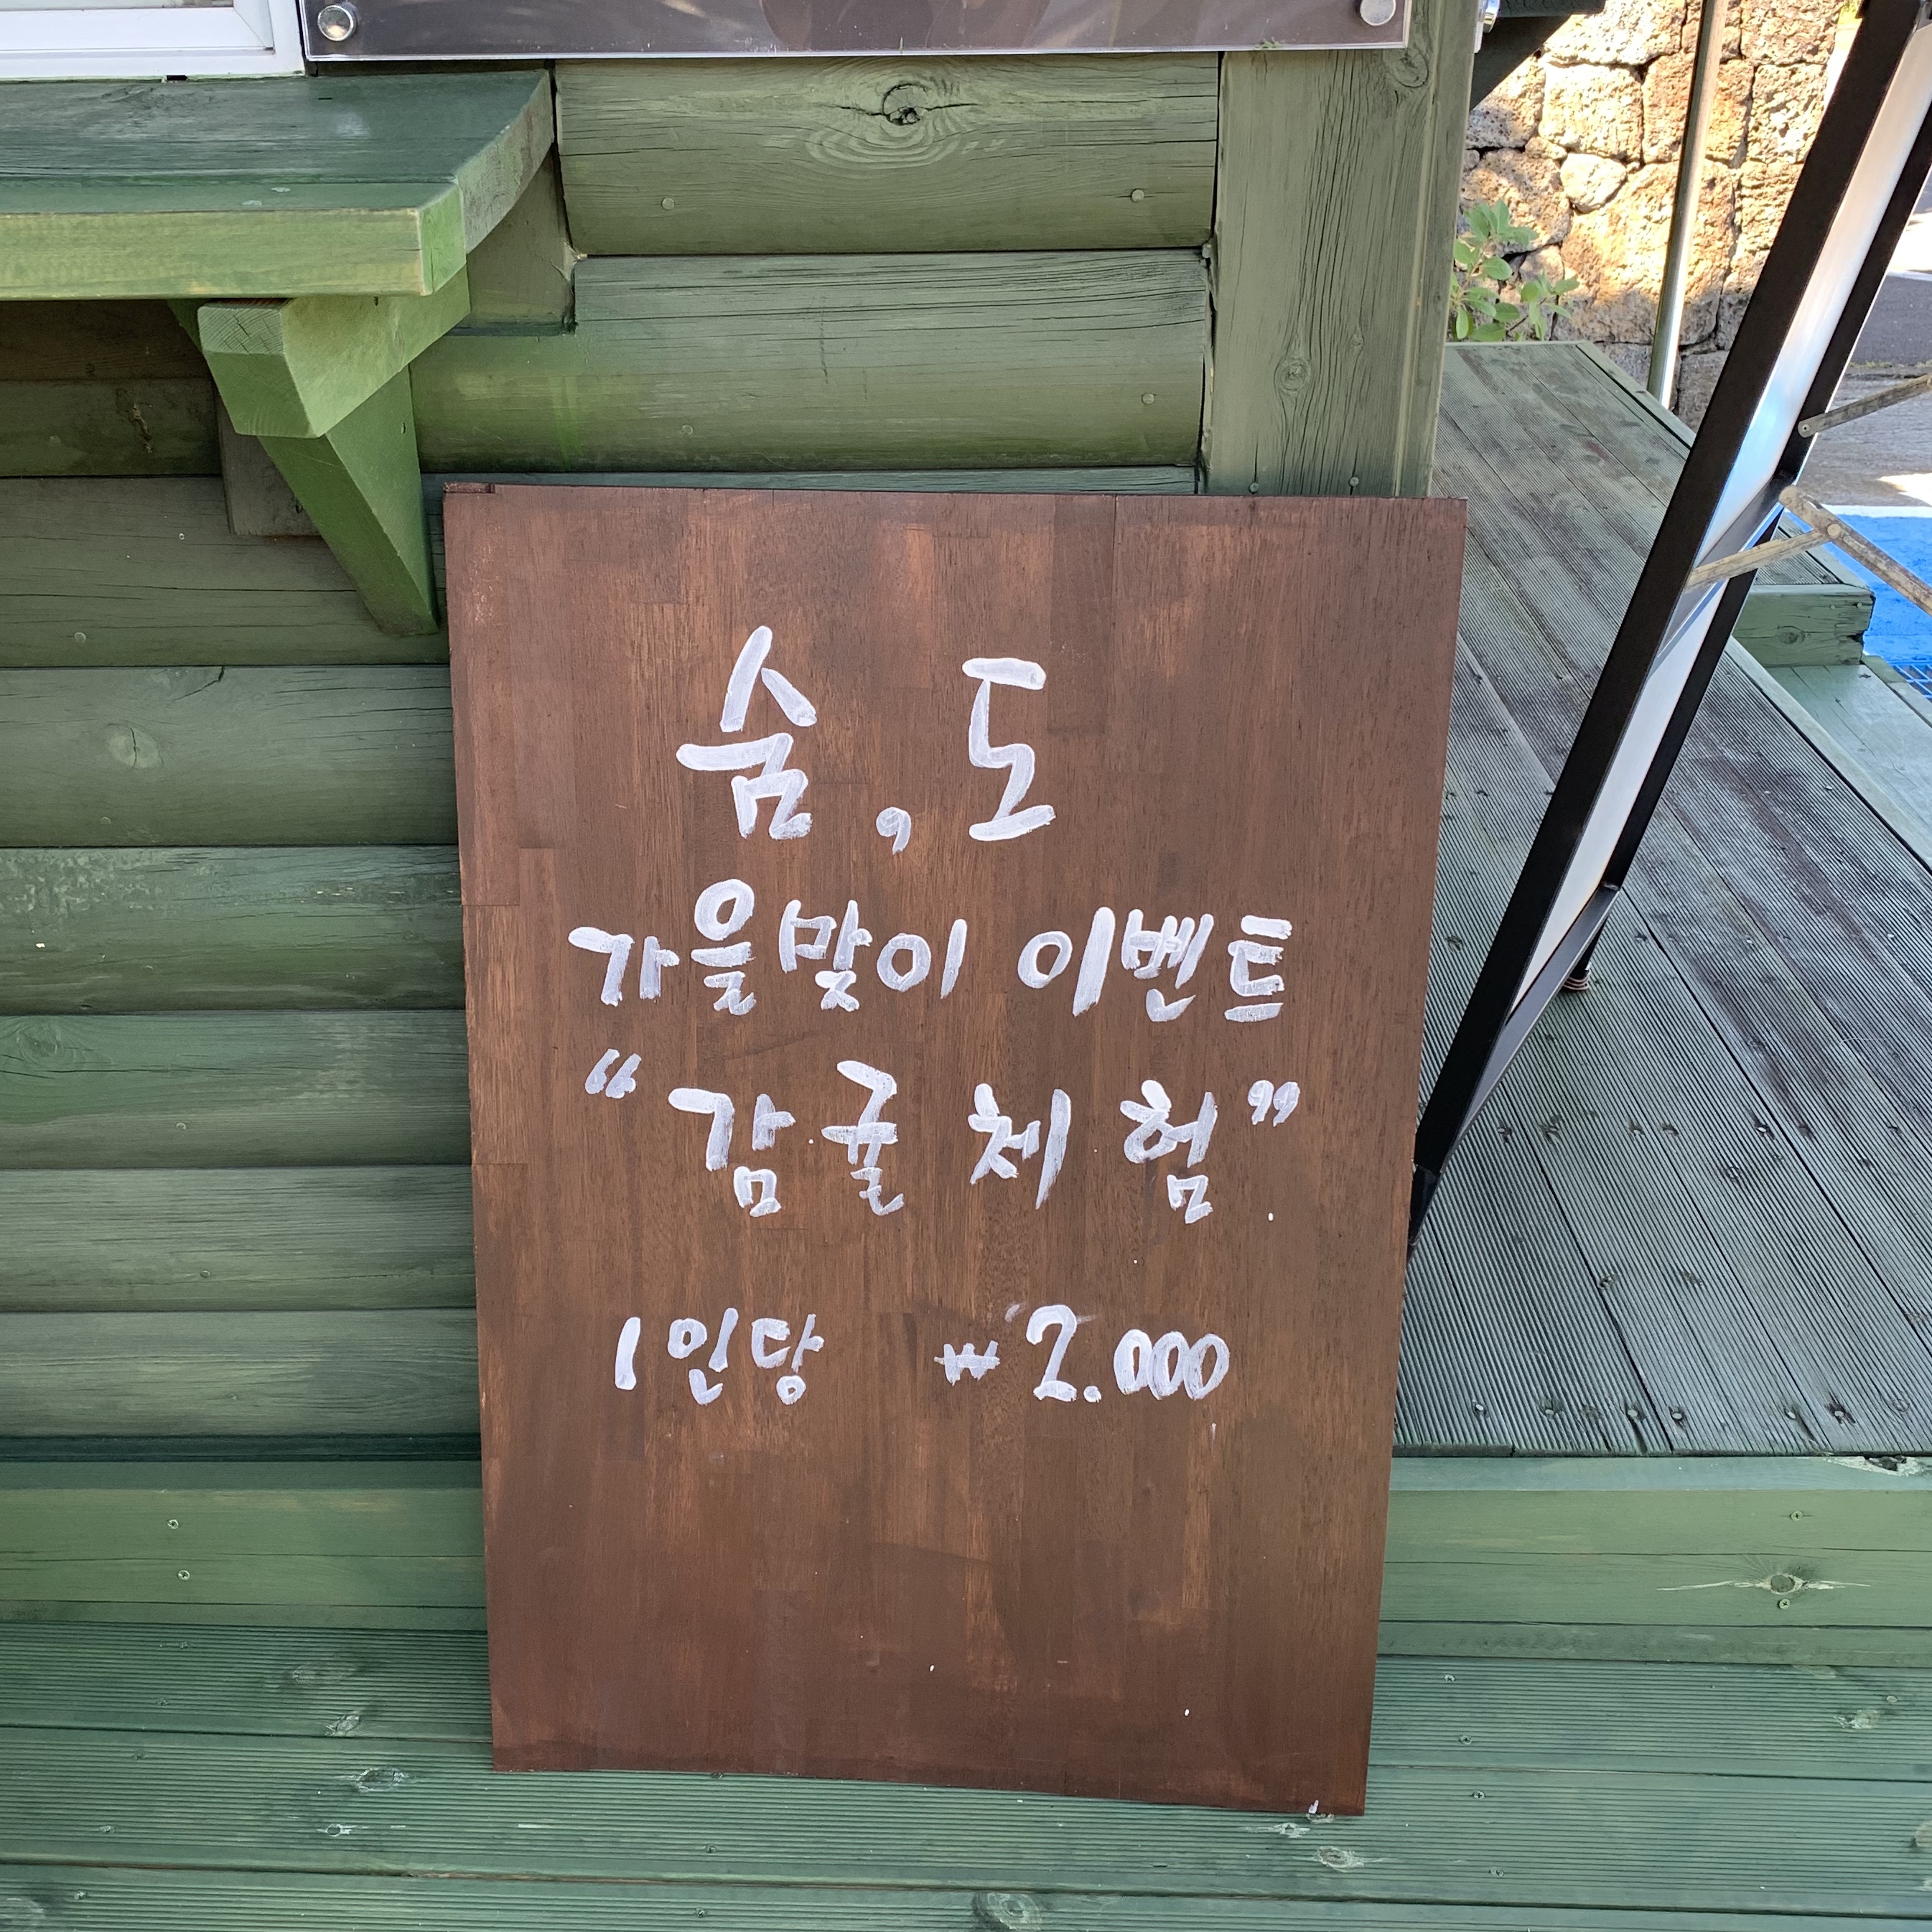 숨,도
가을맞이 이벤트
“감귤체험”
1인당 ₩2.000